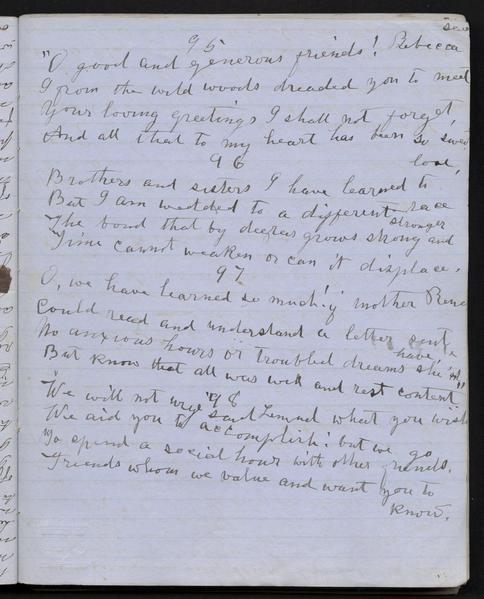 95
"O good and generous friends! Rebecca said
I from the wild woods dreaded you to meet
Your loving greetings I shall not forget,
And all that to my heart has been so sweet
96
Brothers and sisters I have learned to love,
But I am wedded to a different race
The bond that by degrees grows strong and stronger
Time cannot weaken or can it displace.
97
O, we have learned so much! if mother
Could read and understand a letter sent,
No anxious hours or troubled dreams she'd have,
But know that all was well and rest content"
98
"We will not urge" said Lemuel what you wish
We aid you to accomplish: but we go
To spend a social hour with other friends,
Friends whom we value and want you to know.